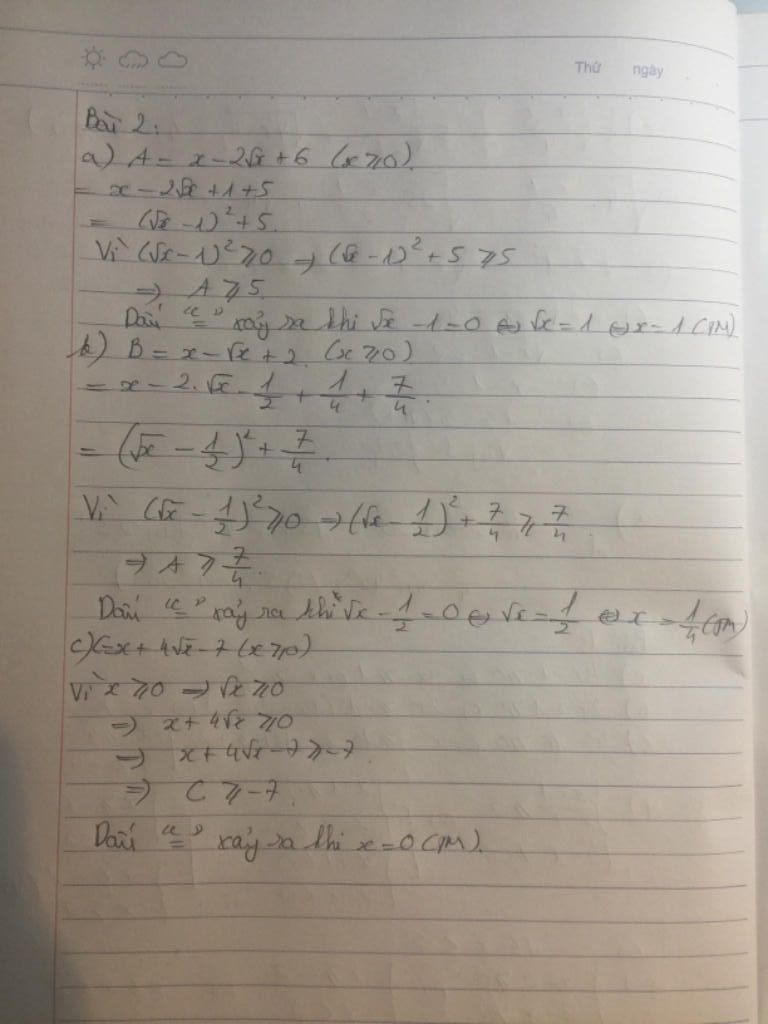 Thứ ngày
Bài 2:
a) A = x - 2√x + 6 (x ⩾ 0)
= x - 2√x + 1 + 5
= (√x - 1)² + 5.
Vì (√x - 1)² ⩾ 0 ⇒ (√x - 1)² + 5 ⩾ 5
⇒ A ⩾ 5.
Dấu "=" xảy ra khi √x - 1 = 0 ⇔ √x = 1 ⇔ x = 1 (TM)
b) B = x - √x + 2. (x ⩾ 0)
= x - 2.√x.1/2 + 1/4 + 7/4.
= (√x - 1/2)² + 7/4.
Vì (√x - 1/2)² ⩾ 0 ⇒ (√x - 1/2)² + 7/4 ⩾ 7/4.
⇒ A ⩾ 7/4.
Dấu "=" xảy ra khi √x - 1/2 = 0 ⇔ √x = 1/2 ⇔ x = 1/4 (TM)
c) C = x + 4√x - 7 (x ⩾ 0)
Vì x ⩾ 0 ⇒ √x ⩾ 0
⇒ x + 4√x ⩾ 0
⇒ x + 4√x - 7 ⩾ -7.
⇒ C ⩾ -7.
Dấu "=" xảy ra khi x = 0 (TM).